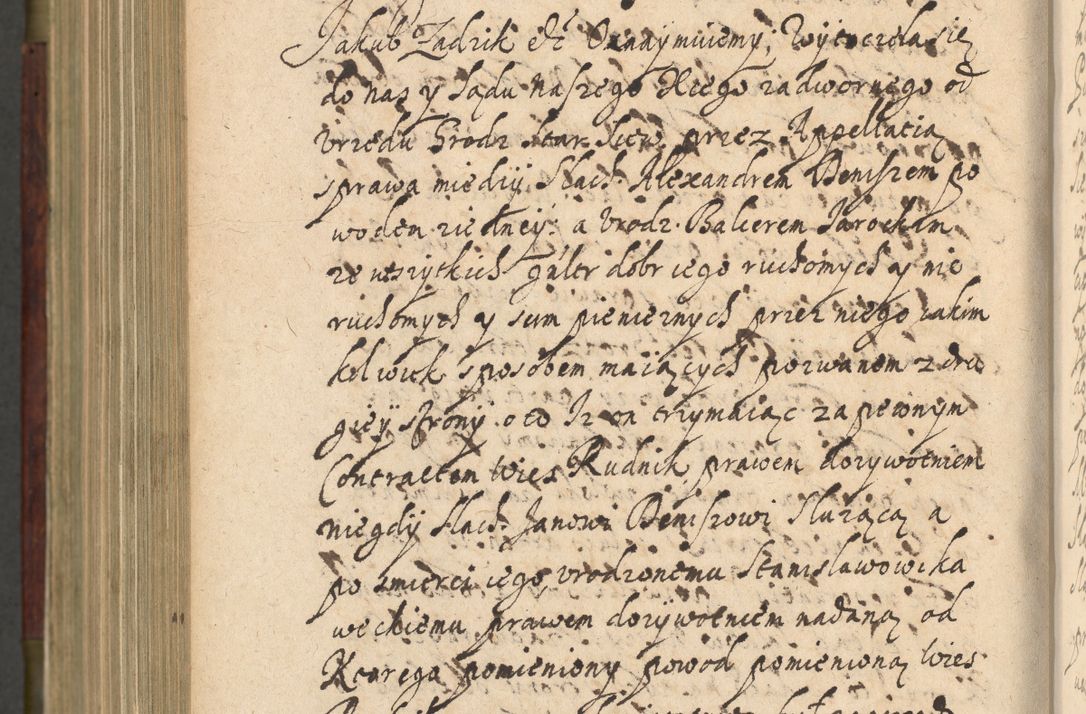 Jakub Zadzik etc Oznaymuiemy, Wytoczela się
do nas y Sądu naszego Xiego zadwornego od
Vrzedu Grodz. Star. Siew. przez Appellatią
sprawa miedzÿ Slach. Alexandrem Beniszem po
wodem ziedney: a Vrodz. Balcerem Jarockim
ze wszytkich y dobr iego ruchomych y nie
ruchomych y sum pienieznych przez niego iakim
kolwiek sposobem maiących pozwanem z dru
gieÿ strony. o to Iz on trzymaiąc zapewnym
Contractem Wies Rudnik prawem dozywotniem
niegdÿ Slach. Janowi Beniszowi Sluzącą a
po smierci iego, vrodzonemu Stanisławowi
prawem dozywotniem nadaną od
Ktorego pomieniony powod pomienioną Wies